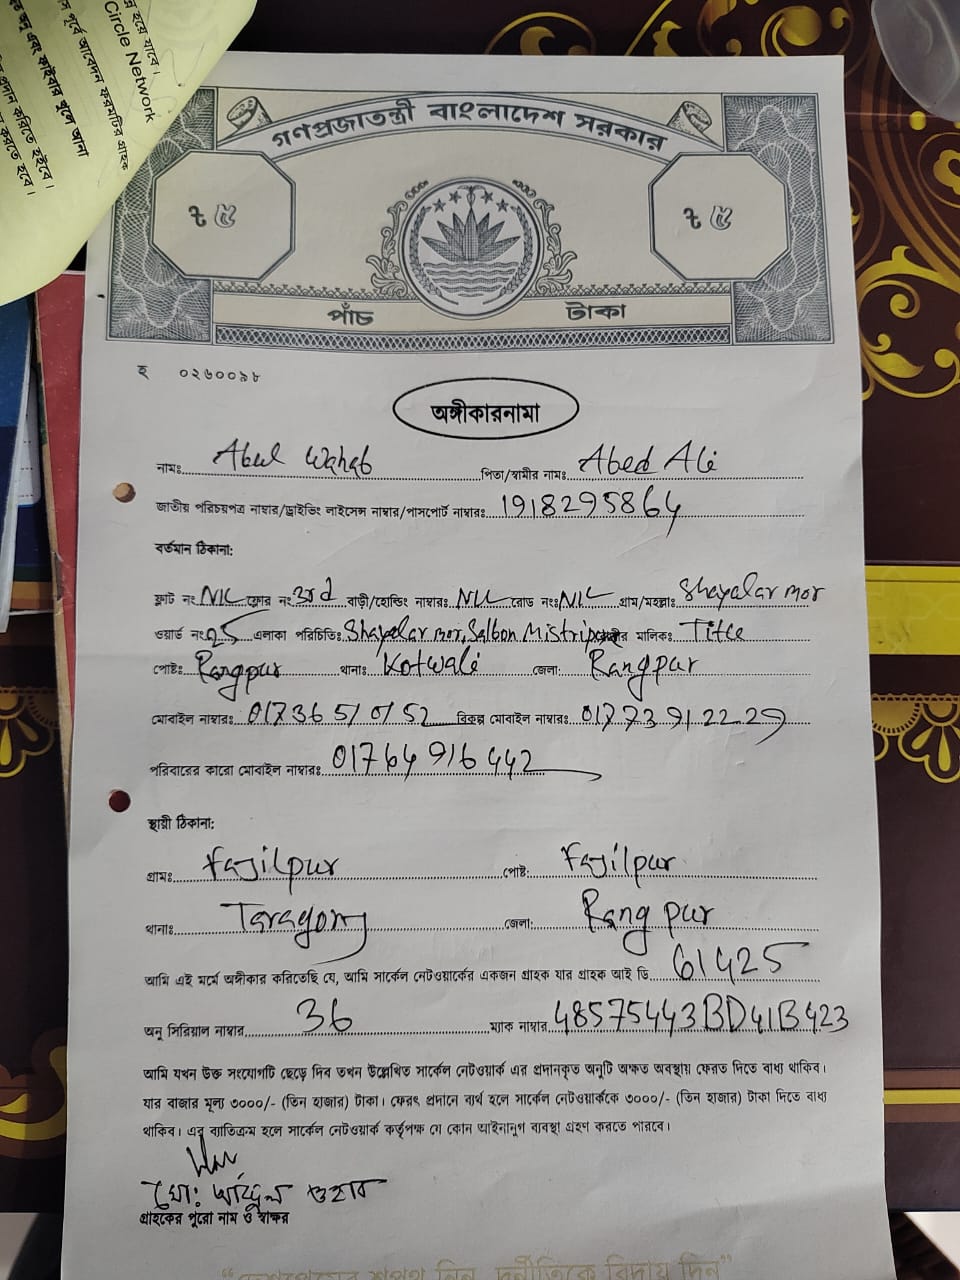 হয়ে যাবে।
Circle Network
পূর্বে আবেদন ফরমটির গ্রাহক
অনু এবং ফাইবার খুলে আনা
প্রদান করিতে হইবে।
করতে হবে।
গণপ্রজাতন্ত্রী বাংলাদেশ সরকার
৳ ৫ ৳ ৫
পাঁচ টাকা
হ ০২৬০০৯৮
অঙ্গীকারনামা
নামঃ Abul Wahab পিতা/স্বামীর নামঃ Abed Ali
জাতীয় পরিচয়পত্র নাম্বার/ড্রাইভিং লাইসেন্স নাম্বার/পাসপোর্ট নাম্বারঃ 1918295864
বর্তমান ঠিকানা:
ফ্লাট নং NIL ফ্লোর নং 3rd বাড়ী/হোল্ডিং নাম্বারঃ NIL রোড নংঃ NIL গ্রাম/মহল্লাঃ Shayalar mor
ওয়ার্ড নং 25 এলাকা পরিচিতিঃ Shayalar mor, Salbon Mistripara মালিকঃ Title
পোষ্টঃ Rangpur থানাঃ Kotwali জেলা: Rangpur
মোবাইল নাম্বারঃ 01736510152 বিকল্প মোবাইল নাম্বারঃ 01773912229
পরিবারের কারো মোবাইল নাম্বারঃ 01764916442
স্থায়ী ঠিকানা:
গ্রামঃ Fajilpur পোষ্ট: Fajilpur
থানাঃ Taragonj জেলা: Rangpur
আমি এই মর্মে অঙ্গীকার করিতেছি যে, আমি সার্কেল নেটওয়ার্কের একজন গ্রাহক যার গ্রাহক আই ডি 61425
অনু সিরিয়াল নাম্বার 36 ম্যাক নাম্বার 48575443BD41B423
আমি যখন উক্ত সংযোগটি ছেড়ে দিব তখন উল্লেখিত সার্কেল নেটওয়ার্ক এর প্রদানকৃত অনুটি অক্ষত অবস্থায় ফেরত দিতে বাধ্য থাকিব।
যার বাজার মূল্য ৩০০০/- (তিন হাজার) টাকা। ফেরৎ প্রদানে ব্যর্থ হলে সার্কেল নেটওয়ার্ককে ৩০০০/- (তিন হাজার) টাকা দিতে বাধ্য
থাকিব। এর ব্যতিক্রম হলে সার্কেল নেটওয়ার্ক কর্তৃপক্ষ যে কোন আইনানুগ ব্যবস্থা গ্রহণ করতে পারবে।
মো: আব্দুল ওহাব
গ্রাহকের পুরো নাম ও স্বাক্ষর
শপথ নিন, দুর্নীতিকে বিদায় দিন"